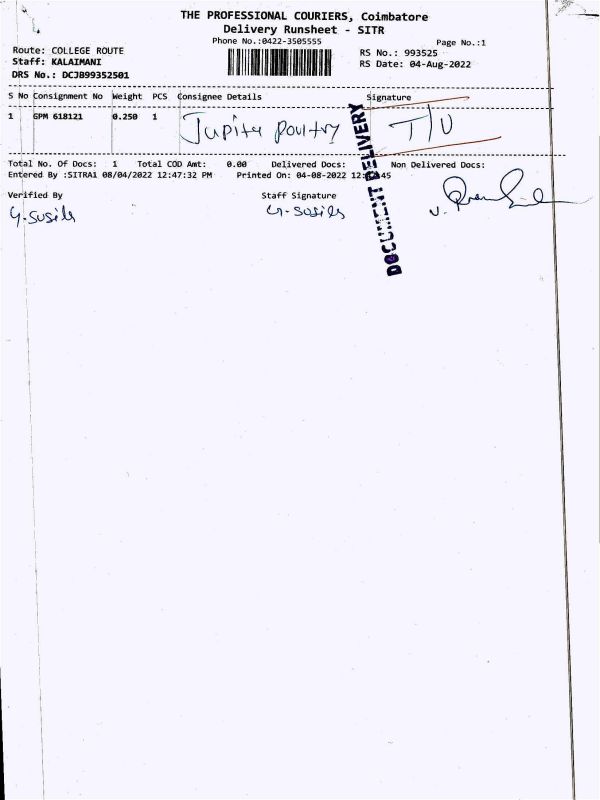 THE PROFESSIONAL COURIERS, Coimbatore
Delivery Runsheet - SITR
Phone No.:0422-3505555
Page No.:1
Route: COLLEGE ROUTE
RS No.: 993525
Staff: KALAIMANI
RS Date: 04-Aug-2022
DRS No.: DCJB99352501
S No Consignment No Weight PCS Consignee Details Signature
1 GPM 618121 0.250 1 Jupite poultry T/U
DOCUMENT DELIVERY
Total No. Of Docs: 1 Total COD Amt: 0.00 Delivered Docs: Non Delivered Docs:
Entered By :SITRA1 08/04/2022 12:47:32 PM Printed On: 04-08-2022 12: :45
Verified By Staff Signature
G-Susila G-Susila